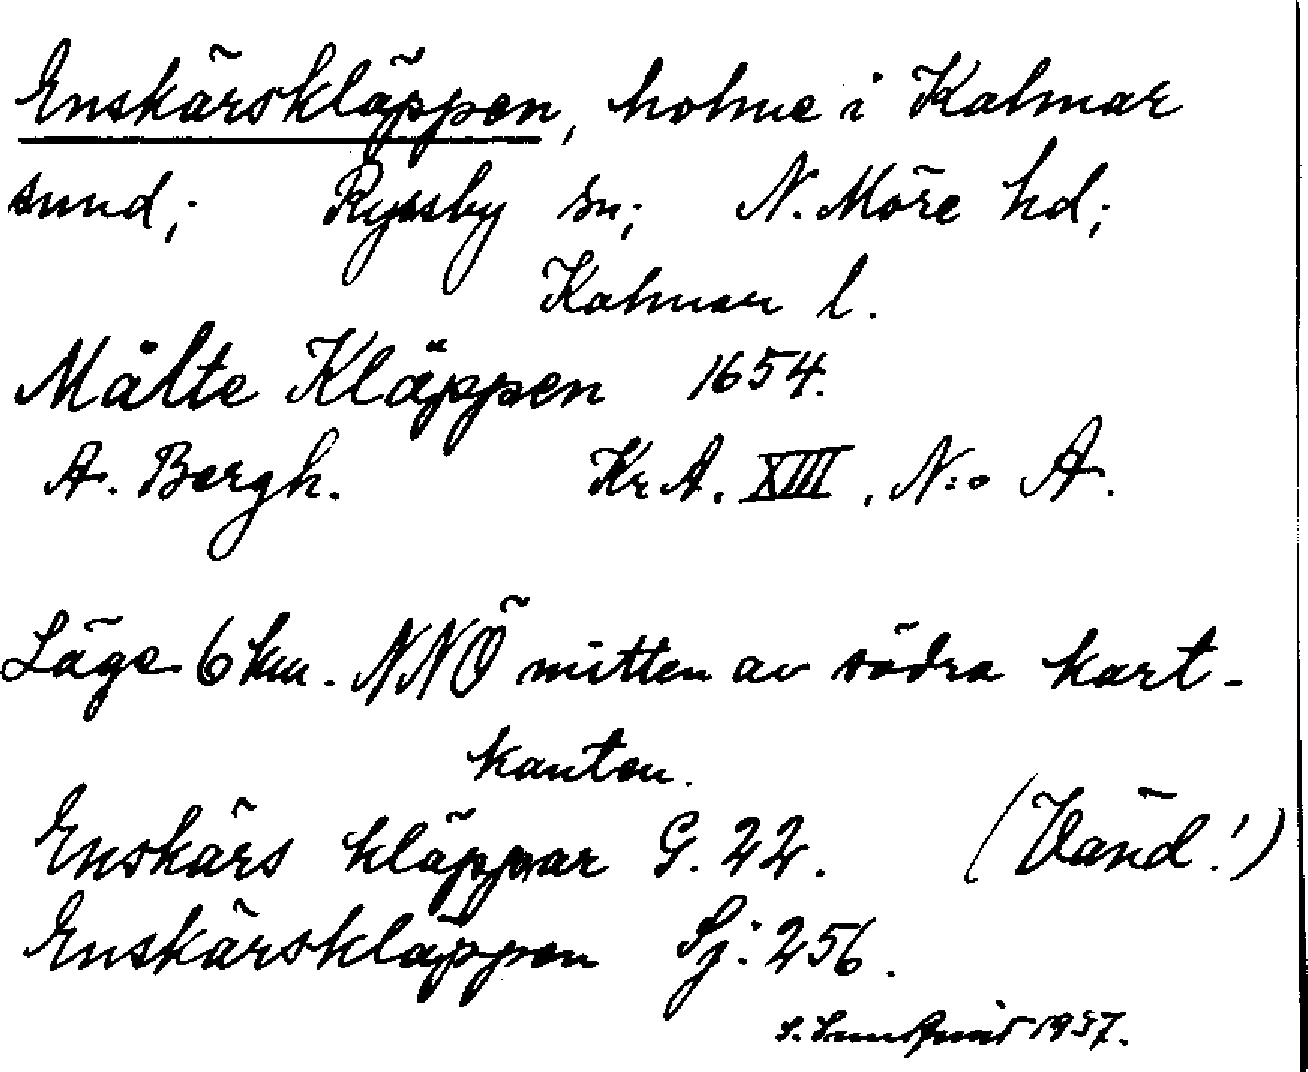 Enskärskläppen, holme i Kalmar
sund; Ryssby sn; N. Möre hd;
Kalmar l.
Målte Kläppen 1654.
A. Bergh. Kr A. XIII, N:o A.
Läge 6 km. NNÖ mitten av södra kart-
kanten.
Enskärs kläppar G. 22. (Vänd!)
Enskärskläppen Sj: 256.
S. Sundqvist 1937.